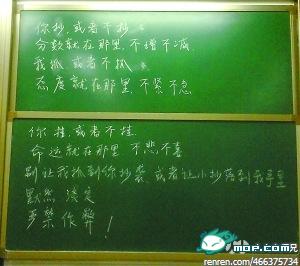 你抄,或者不抄
分数就在那里,不增不减
我抓 或者不抓
态度就在那里,不紧不急
你挂,或者不挂
命运就在那里 不悲,不喜
别让我抓到你抄袭,或者让小抄落到我手里
默然 淡定
严禁作弊!
mop.com 猫扑
renren.com/466375734